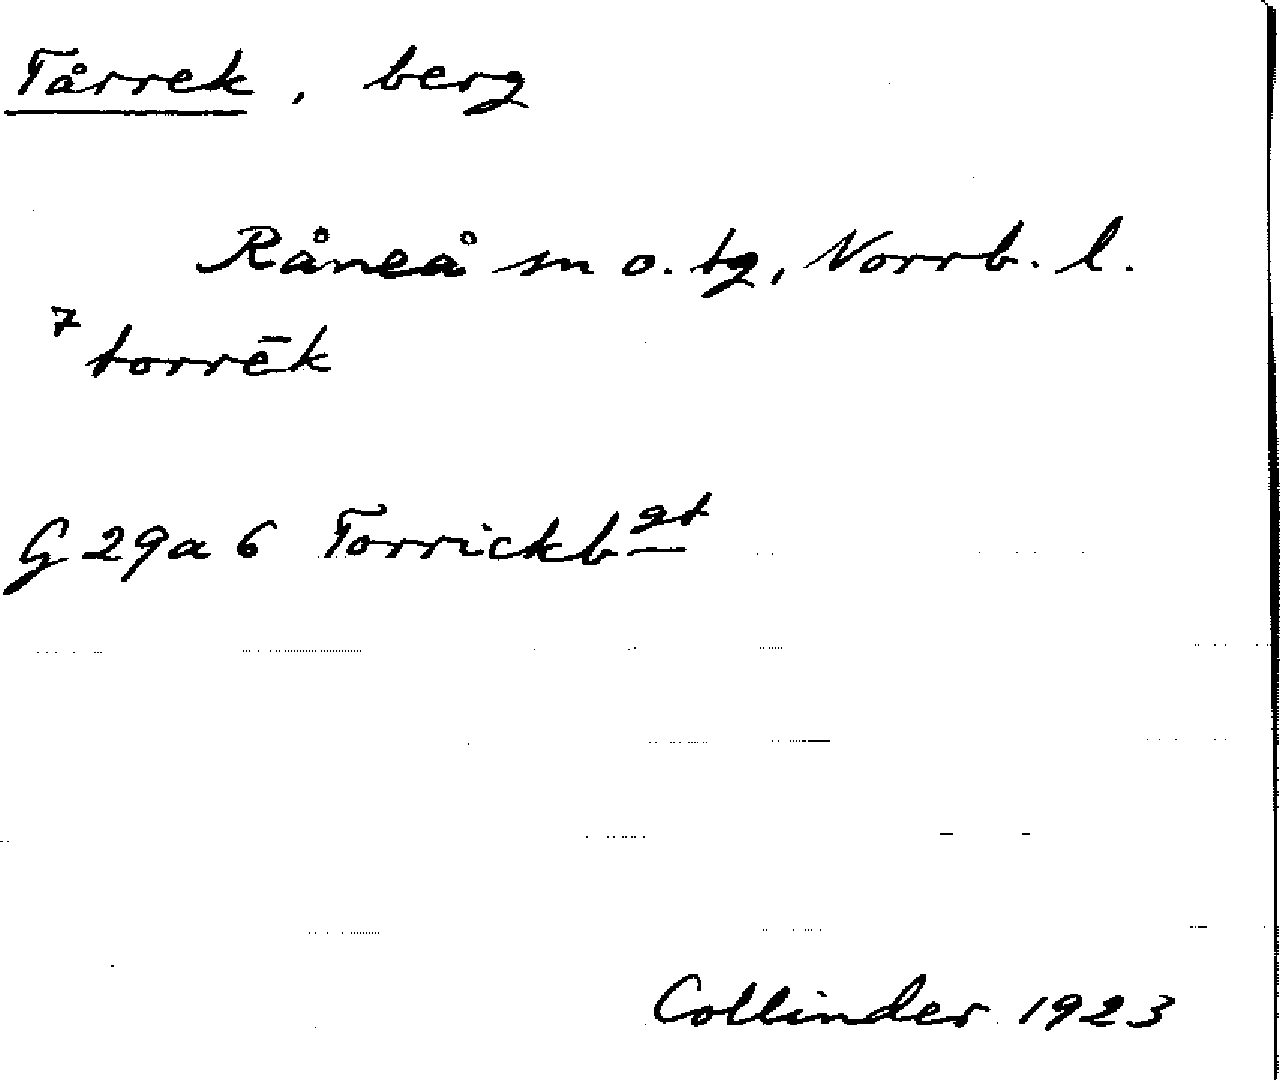 Tårrek, berg
Råneå sn o. tg, Norrb. l.
7 torrēk
G 29a 6 Torrickbgt
Collinder 1923